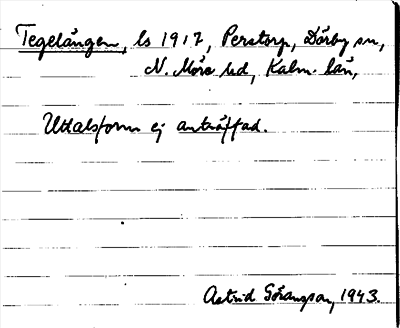 Tegelängen, ls 1917, Perstorp, Dörby sn,
N. Möre hd, Kalm. län,
Uttalsform ej anträffad.
Astrid Göransson, 1943.